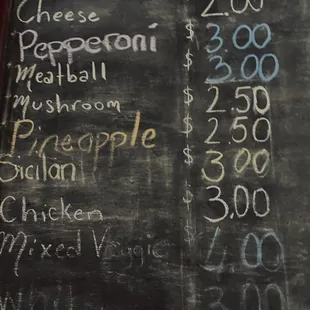 Cheese 2.00
Pepperoni $ 3.00
Meatball $ 3.00
Mushroom $ 2.50
Pineapple $ 2.50
Sicilan $ 3.00
Chicken $ 3.00
Mixed Veggie $ 4.00
3.00